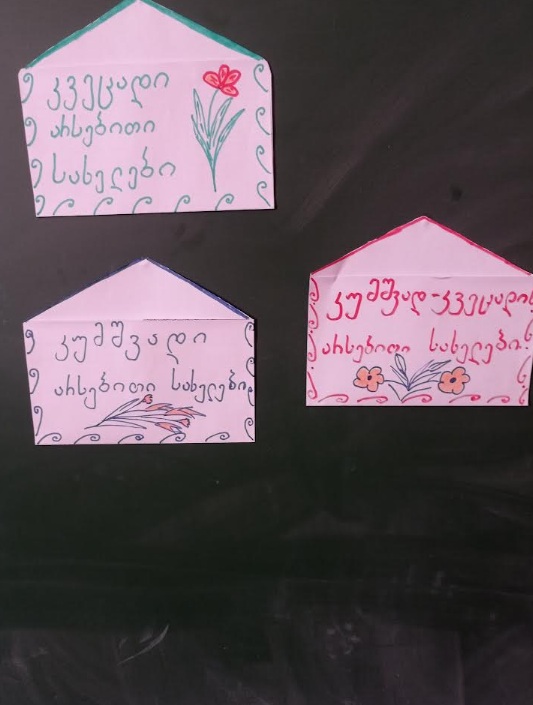 კვეცადი
არსებითი
სახელები
კუმშვადი
არსებითი სახელები.
კუმშვად-კვეცადი
არსებითი სახელები.